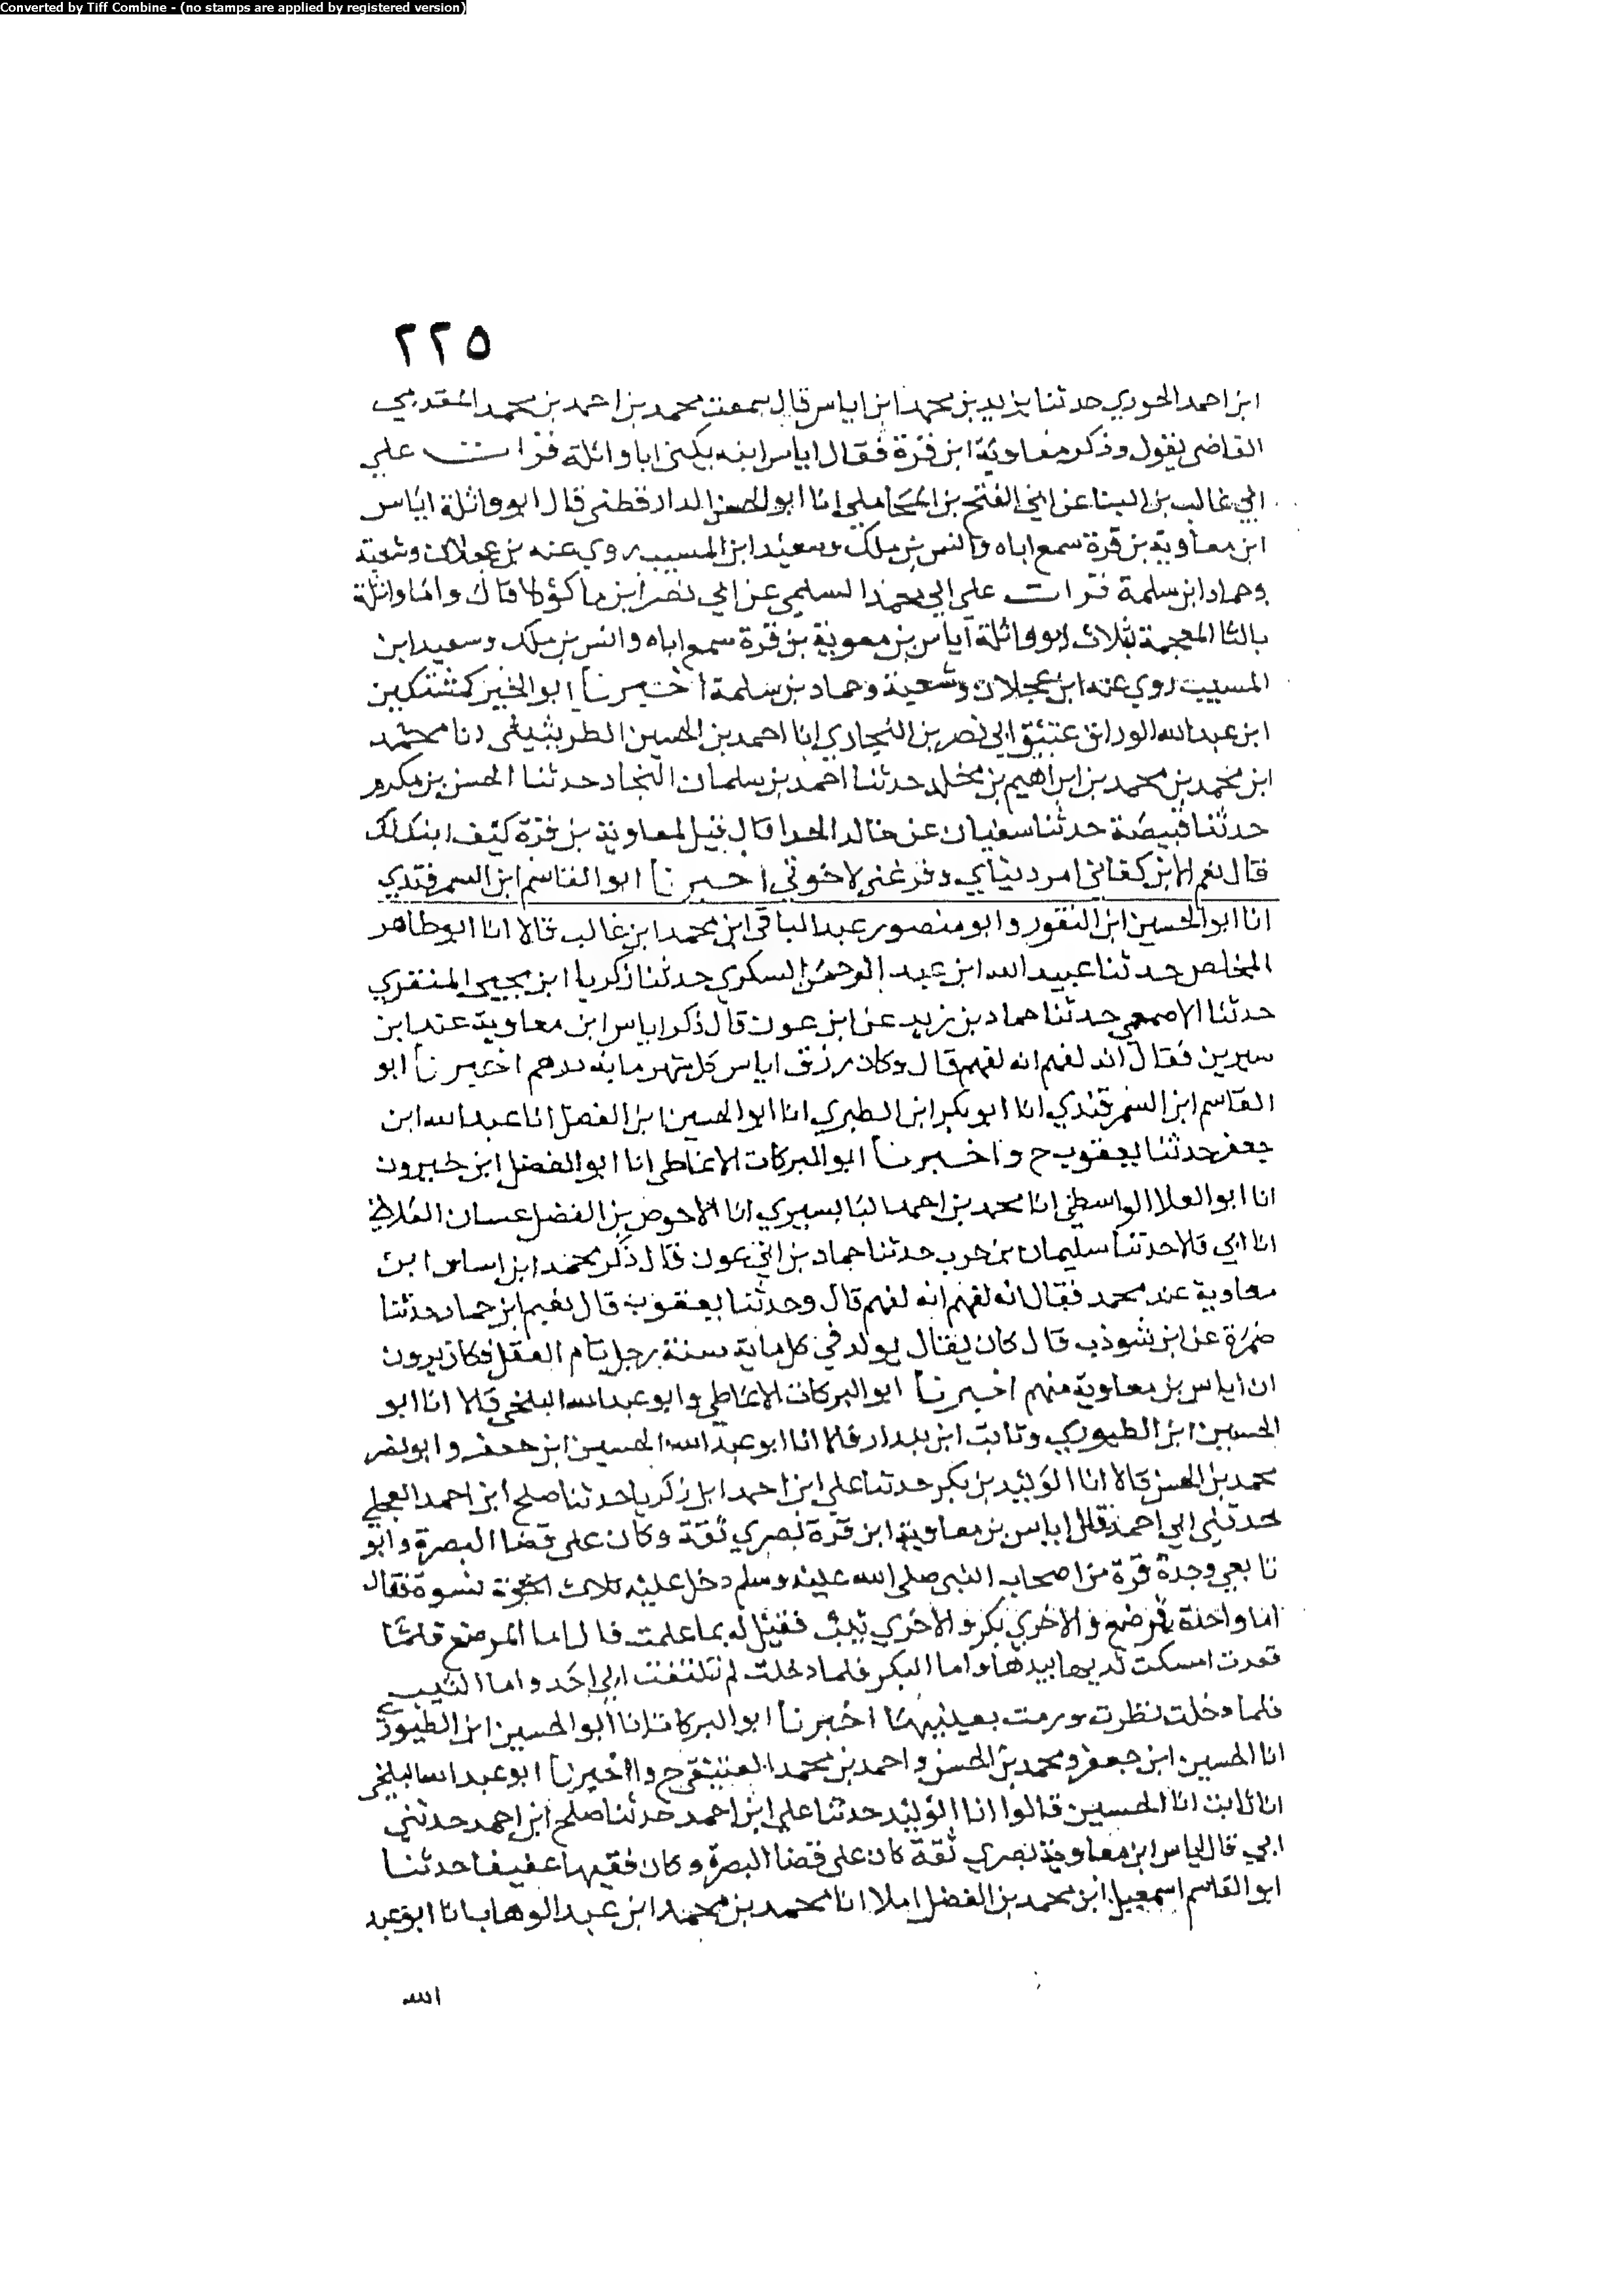 Converted by Tiff Combine - (no stamps are applied by registered version)
٢٢٥
ابن احمد الجوري حدثنا يزيد بن محمد ابن اياس قال سمعت محمد بن احمد بن محمد المقدمي
القاضي يقول وذكر معاوية ابن قرة فقال اياس ابنه يكنى ابا واثلة قرات علي
ابي غالب بن البنا عن ابي الفتح بن المحاملي انا ابو الحسن الدارقطني قال ابو واثلة اياس
ابن معاوية بن قرة سمع اباه وانس بن ملك وسعيد ابن المسيب روي عنه بن عجلان وشعبة
وحماد ابن سلمة قرات علي ابي محمد السلمي عن ابي نصر ابن ماكولا قال واما واثلة
بالثا المعجمة بثلاث ابو واثلة اياس بن معوية بن قرة سمع اباه وانس بن ملك وسعيد ابن
المسيب روي عنه ابن عجلان وشعبة وحماد بن سلمة اخبرنا ابو الخير كمشتكين
ابن عبد الله الوراق عتيق ابي نصر بن النجاري انا احمد بن الحسين الطريثيثي انا محمد
ابن محمد بن محمد بن ابراهيم بن مخلد حدثنا احمد بن سلمان النجاد حدثنا الحسن بن مكرم
حدثنا قبيصة حدثنا سفيان عن خالد الحذا قال قيل لمعاوية بن قرة كيف ابنك لك
قال نعم الابن كفاني امر دنياي وفرغني لاخرتي اخبرنا ابو القاسم ابن السمرقندي
انا ابو الحسين ابن النقور وابو منصور عبد الباقي ابن محمد ابن غالب قالا انا ابو طاهر
المخلص حدثنا عبيد الله ابن عبد الرحمن السكري حدثنا زكريا ابن يحيى المنقري
حدثنا الاصمعي حدثنا حماد بن زيد عن ابن عون قال ذكر اياس ابن معاوية عند ابن
سيرين فقال انه لفهم انه لفهم قال وكان رزق اياس كل شهر ماية درهم اخبرنا ابو
القاسم ابن السمرقندي انا ابو بكر ابن الطبري انا ابو الحسين ابن الفضل انا عبد الله ابن
جعفر حدثنا يعقوب ح واخبرنا ابو البركات الانماطي انا ابو الفضل ابن خيرون
انا ابو العلا الواسطي انا محمد بن احمد البابسيري انا الاحوص بن الفضل غسان الغلابي
انا ابي قالا حدثنا سليمان بن حرب حدثنا حماد بن ابي عون قال ذكر محمد ابن اياس ابن
معاوية عند محمد فقال انه لفهم انه لفهم قال وحدثنا يعقوب قال نعيم ابن حماد حدثنا
ضمرة عن ابن شوذب قال كان يقال يولد في كل ماية سنة رجل تام العقل فكان يرون
ان اياس بن معاوية منهم اخبرنا ابو البركات الانماطي وابو عبد الله البلخي قالا انا ابو
الحسين ابن الطيوري وثابت ابن بندار قالا انا ابو عبد الله الحسين ابن جعفر وابو نصر
محمد بن الحسن قالا انا الوليد بن بكر حدثنا علي ابن احمد ابن زكريا حدثنا صلح ابن احمد العجلي
حدثني ابي احمد قال اياس بن معاوية ابن قرة بصري ثقة وكان علي قضا البصرة وابو
تابعي وجده قرة من اصحاب النبي صلى الله عليه وسلم دخل عليه ثلاث نسوة فقال
اما واحدة فمرضع والاخري بكر والاخري ثيب فقيل له بما علمت قال اما المرضع فلما
قعدت امسكت ثديها بيدها واما البكر فلما دخلت لم تلتفت الي احد واما الثيب
فلما دخلت نظرت ورمت بعينيها اخبرنا ابو البركات انا ابو الحسين ابن الطيوري
انا الحسين ابن جعفر ومحمد بن الحسن واحمد بن محمد العتيقي ح واخبرنا ابو عبد الله البلخي
انا ثابت انا الحسين قالوا انا الوليد حدثنا علي ابن احمد حدثنا صلح ابن احمد حدثني
ابي قال اياس ابن معاوية بصري ثقة كان علي قضا البصرة وكان فقيها عفيفا حدثنا
ابو القاسم اسمعيل ابن محمد بن الفضل املا انا محمد بن محمد ابن عبد الوهاب انا ابو عبد
الله